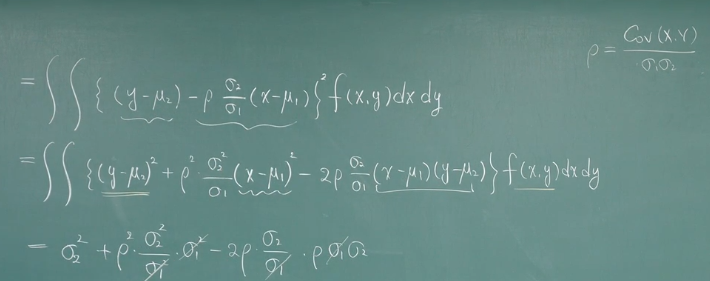 ρ = Cov(X,Y) / σ₁σ₂
= ∫∫ { (y-μ₂) - ρ σ₂/σ₁ (x-μ₁) }² f(x,y) dx dy
= ∫∫ { (y-μ₂)² + ρ² · σ₂²/σ₁ (x-μ₁)² - 2ρ σ₂/σ₁ (x-μ₁)(y-μ₂) } f(x,y) dx dy
= σ₂² + ρ² · σ₂²/σ₁² · σ₁² - 2ρ · σ₂/σ₁ · ρ σ₁ σ₂